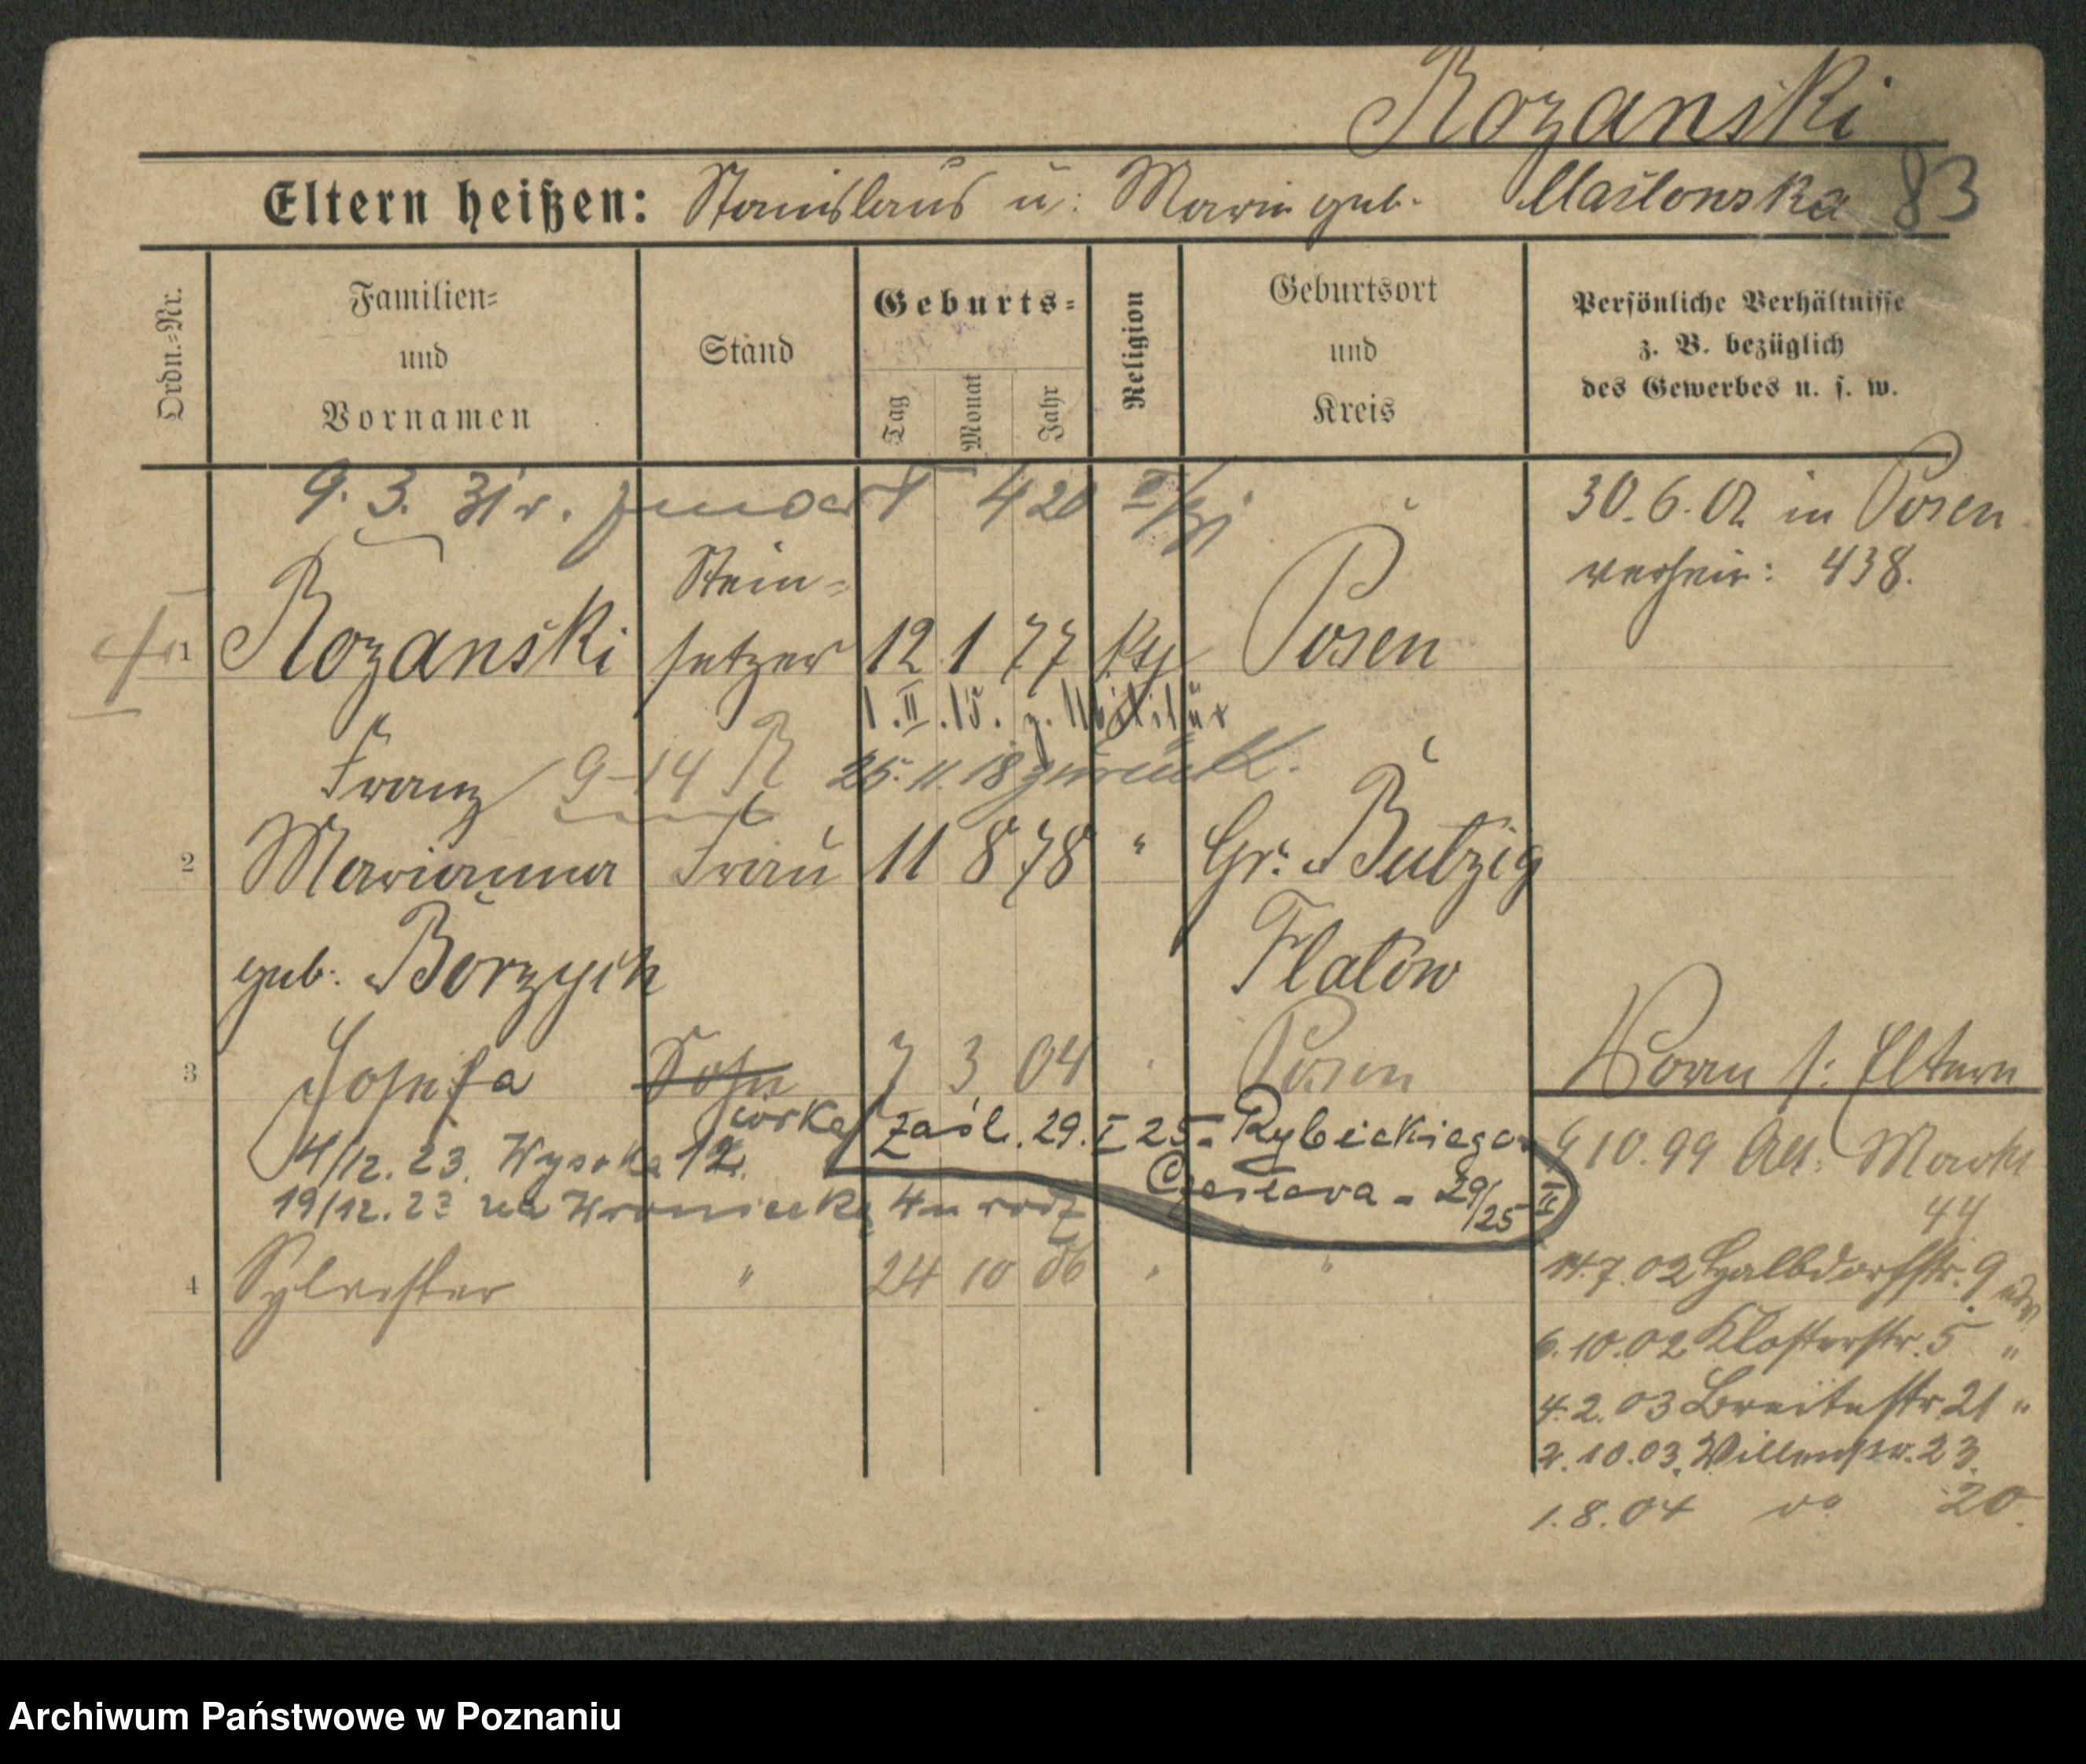 Rozanski
Eltern heißen: Stanislaus u: Marie geb. Maslonska 83
Ordn.-Nr.
Familien-
und
Vornamen
Stand
Geburts-
Tag
Monat
Jahr
Religion
Geburtsort
und
Kreis
Persönliche Verhältnisse
z. B. bezüglich
des Gewerbes u. s. w.
9. 3. 31 r. zmarł 420 31
30.6.02 in Posen
verheir: 438.
Stein-
1 Rozanski setzer 12 1 77 Posen
1.II.15. z. Militär
Franz 9-14 R 25.11.18 zurück.
2 Marianna Frau 11 8 78 " Gr. Butzig
geb. Borzych Flatow
3 Josefa Sohn 7 3 04 Posen
Vorn s: Eltern
córka zaśl. 29.I 25 - Rybickiego
4/12. 23. Wysoka 12.
Czesława - 29/25 II
19/12. 23 na Wroniecką 4 u rodz
4 10.99 Alt. Markt
44
4 Sylvester " 24 10 06 " "
14.7.02 Halbdorfstr. 9
6.10.02 Klosterstr. 5 "
4.2.03 Breitestr. 21 "
2.10.03. 23.
1.8.04 do 20.
Archiwum Państwowe w Poznaniu